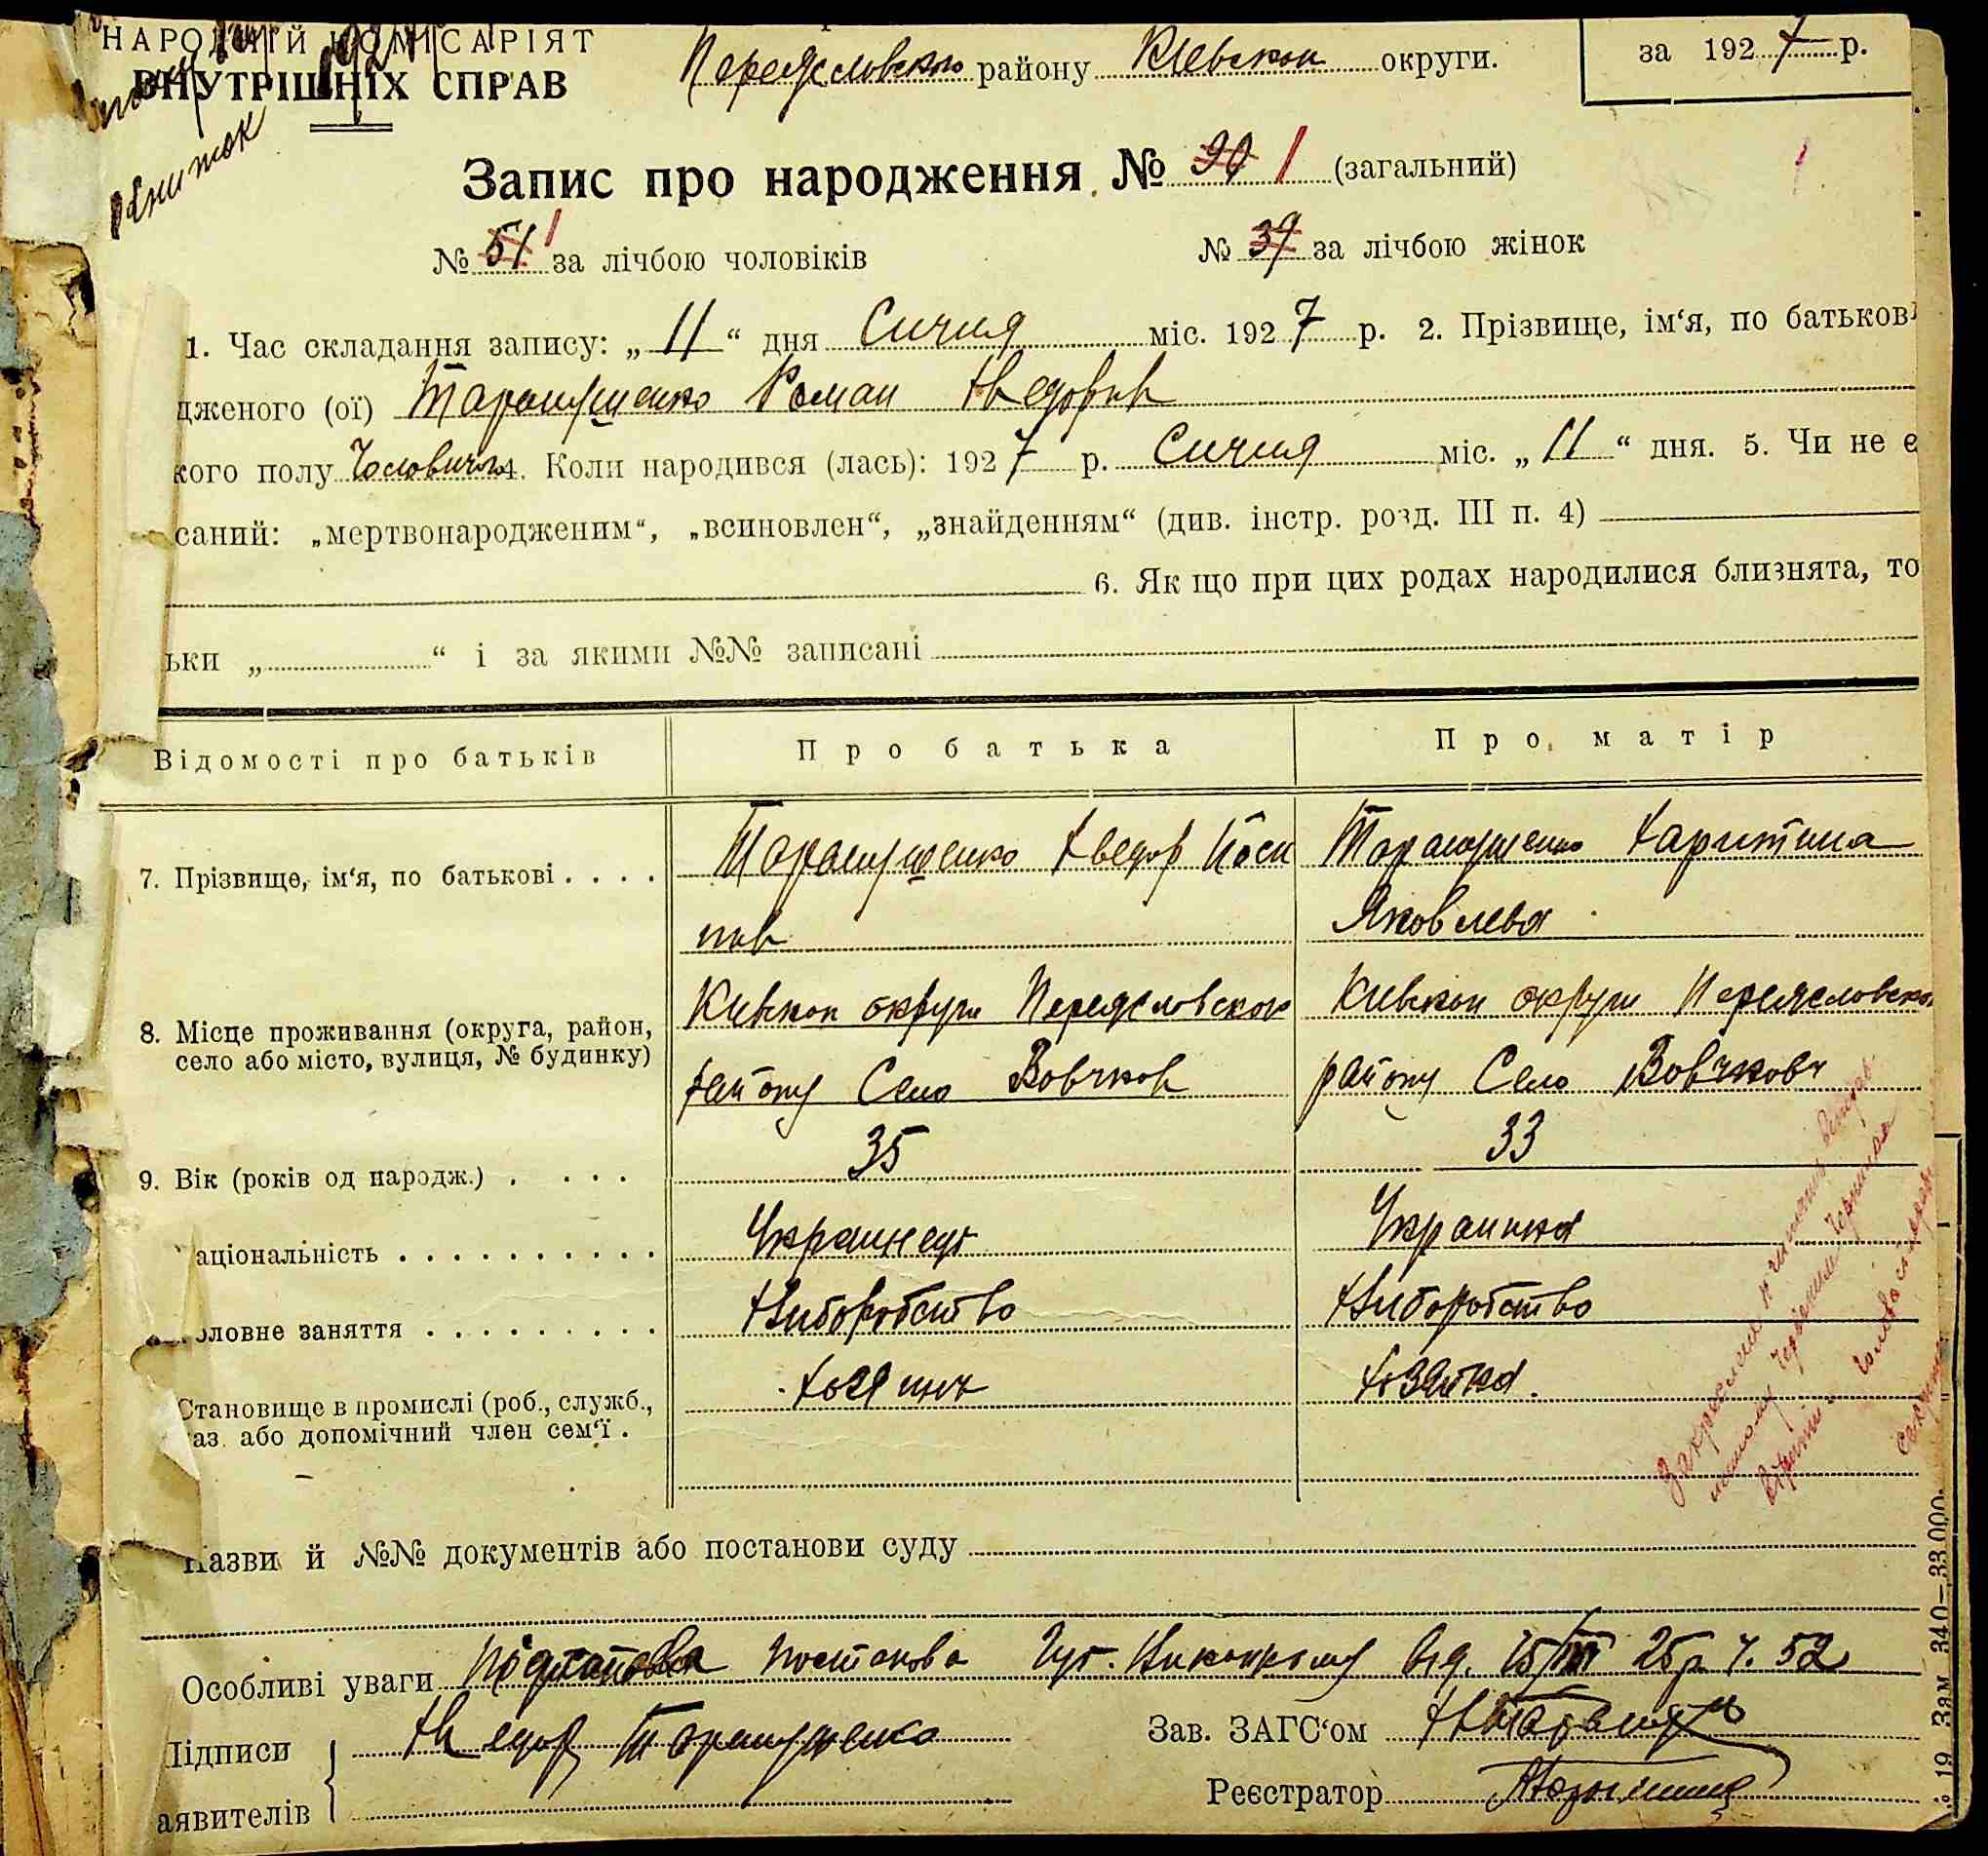 НАРОДНІЙ КОМІСАРІЯТ
ВНУТРІШНІХ СПРАВ
Переясловского району Киевскои округи.
за 1927 р.
Запис про народження № 90 1 (загальний)
№ 51 1 за лічбою чоловіків
№ 39 за лічбою жінок
1. Час складання запису: „11“ дня Сичня міс. 1927 р. 2. Прізвище, ім‘я, по батькові
дженого (ої) Таранушенко Роман Хведорив
кого полу Чоловичого 4. Коли народився (лась): 1927 р. Сичня міс. „11“ дня. 5. Чи не є
саний: „мертвонародженим“, „всиновлен“, „знайденням“ (див. інстр. розд. III п. 4)
6. Як що при цих родах народилися близнята, то
ьки „ “ і за якими №№ записані
Відомості про батьків
Про батька
Про матір
7. Прізвище, ім‘я, по батькові . . . .
Таранушенко Хведор Йоси
пив
Таранушенко Харитина
Яковлева
8. Місце проживання (округа, район,
село або місто, вулиця, № будинку)
Кивскои округи Переясловского
району Село Вовчков
Кивскои округи Переясловско
району Село Вовчков
9. Вік (років од народж.) . . . .
35
33
аціональність . . . . . . . . . .
Украинец
Украинка
оловне заняття . . . . . . . . .
Хлиборобство
Хлиборобство
Становище в промислі (роб., служб.,
аз. або допомічний член сем‘ї .
Хозяин
Хозяйка.
Назви й №№ документів або постанови суду
Особливі уваги Постанова Виконкому від. 25 р. ч. 52
Підписи
аявителів
Хведор Таранушенко
Зав. ЗАГС‘ом
Реєстратор
19 Зам 340—33.000